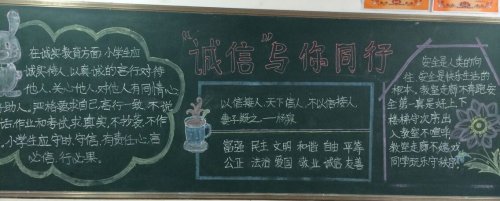 "诚信"与你同行
在诚实教育方面,小学生应
诚实待人,以真诚的言行对待
他人、关心他人,对他人有同情心
助人。严格要求自己,言行一致,不说
话,作业和考试求真实,不抄袭、不作
小学生应守时、守信、有责任心,言
必信,行必果。
以信接人,天下信人,不以信接人,
妻子疑之。——杨泉
富强 民主 文明 和谐 自由 平等
公正 法治 爱国 敬业 诚信 友善
安全是人类的向
往,安全是快乐生活的
根本。教室走廊不奔跑安
全第一真是好上下
楼梯守次序出
入教室不喧哗
教室走廊不嬉戏
同学玩乐守秩序